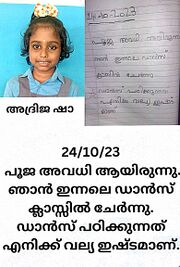 24/10/2023
പൂജ അവധി ആയിരുന്നു.
ഞാൻ ഇന്നലെ ഡാൻസ്
ക്ലാസ്സിൽ ചേർന്നു.
ഡാൻസ് പഠിക്കുന്നത്
എനിക്ക് വല്യ ഇഷ്ടമാണ്.
അദ്രിജ ഷാ
24/10/23
പൂജ അവധി ആയിരുന്നു.
ഞാൻ ഇന്നലെ ഡാൻസ്
ക്ലാസ്സിൽ ചേർന്നു.
ഡാൻസ് പഠിക്കുന്നത്
എനിക്ക് വല്യ ഇഷ്ടമാണ്.